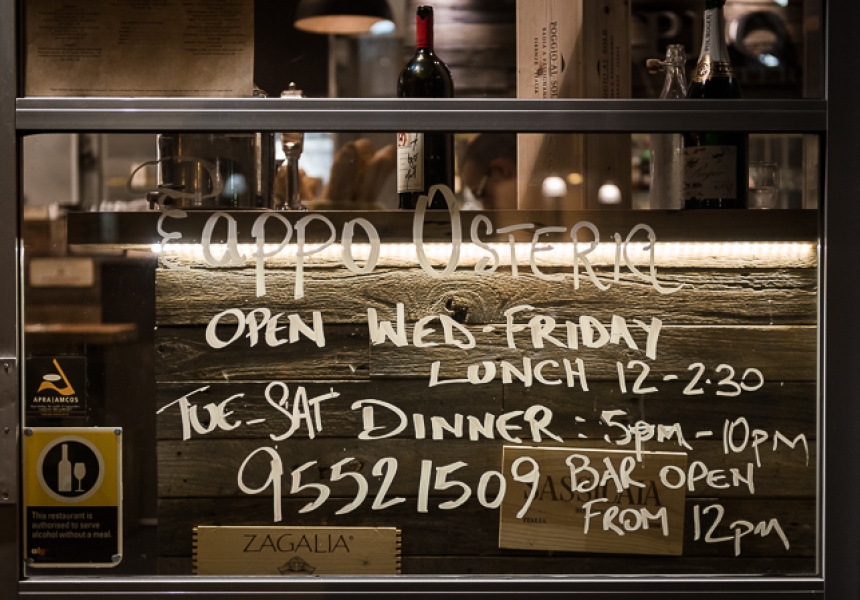 POGGIO AL SOLE
Eappo OSTERIA
OPEN WED-FRIDAY
LUNCH 12-2.30
TUE-SAT DINNER: 5pm-10pm
95521509
BAR OPEN
FROM 12pm
SASSICAIA
ITALIA
ZAGALIA
APRA|AMCOS
This restaurant is
authorised to serve
alcohol without a meal.